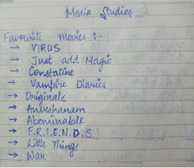 Media Studies
Favourite movies :-
→ VIRUS
→ Just add Magic
→ Constatine
→ Vampire Diaries
→ Originals
→ Anveshanam
→ Abominable
→ F.R.I.E.N.D.S
→ Little Things
→ War